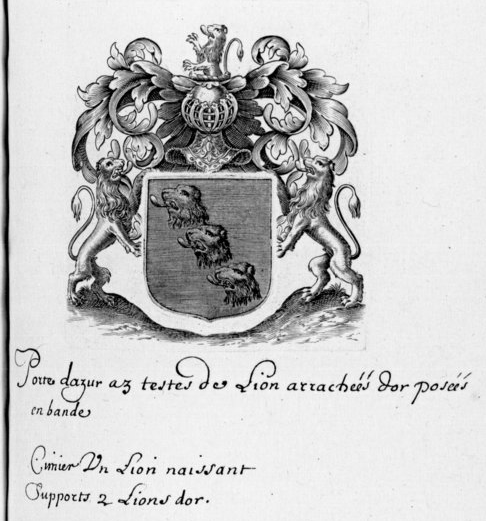 Porte dazur a 3 testes de Lion arrachéés dor poséés
en bande
Cimier Vn Lion naissant
Supports 2 Lions dor.